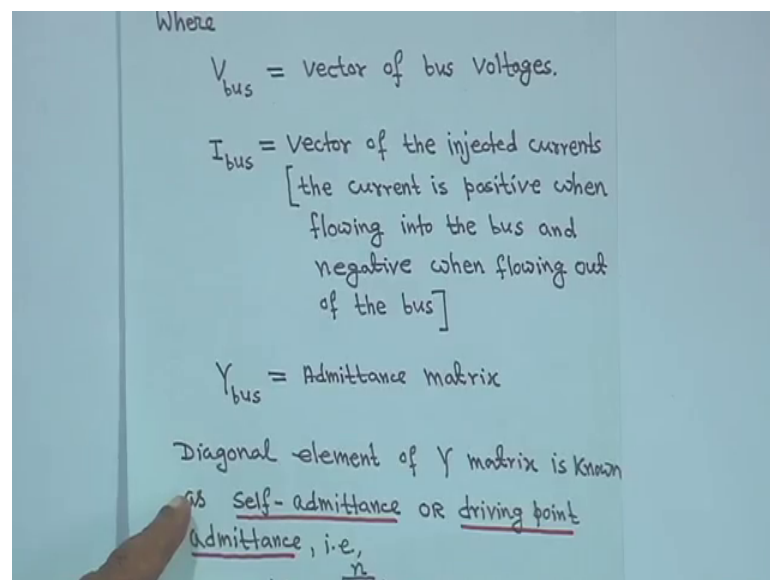 Where
V_bus = Vector of bus voltages.
I_bus = Vector of the injected currents
[the current is positive when
flowing into the bus and
negative when flowing out
of the bus]
Y_bus = Admittance matrix
Diagonal element of Y matrix is known
as self-admittance OR driving point
admittance, i.e,
n